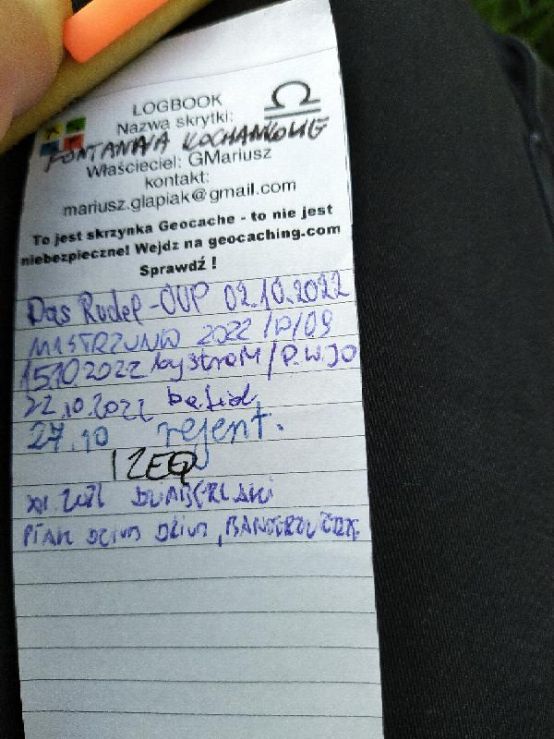 LOGBOOK
Nazwa skrytki:
FONTANNA KOCHANKOWIE
Właściciel: GMariusz
kontakt:
mariusz.glapiak@gmail.com
To jest skrzynka Geocache - to nie jest
niebezpieczne! Wejdz na geocaching.com
Sprawdź !
Das Rudel - OUP 02.10.2022
MISTRZUNIO 2022/10/09
15.10.2022 bystroM / P.W.JO
22.10.2022
27.10 rejent.
IZEQ
XII.2022
PTAK DZIUB DZIUB,